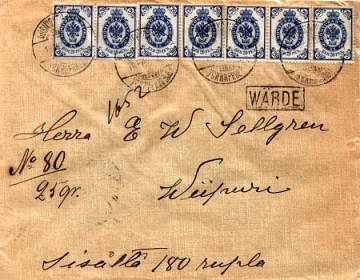 1652
WÄRDE
Herra E W Sellgren
No 80
25gr.
Wiipuri
Sisältä 180 rupla